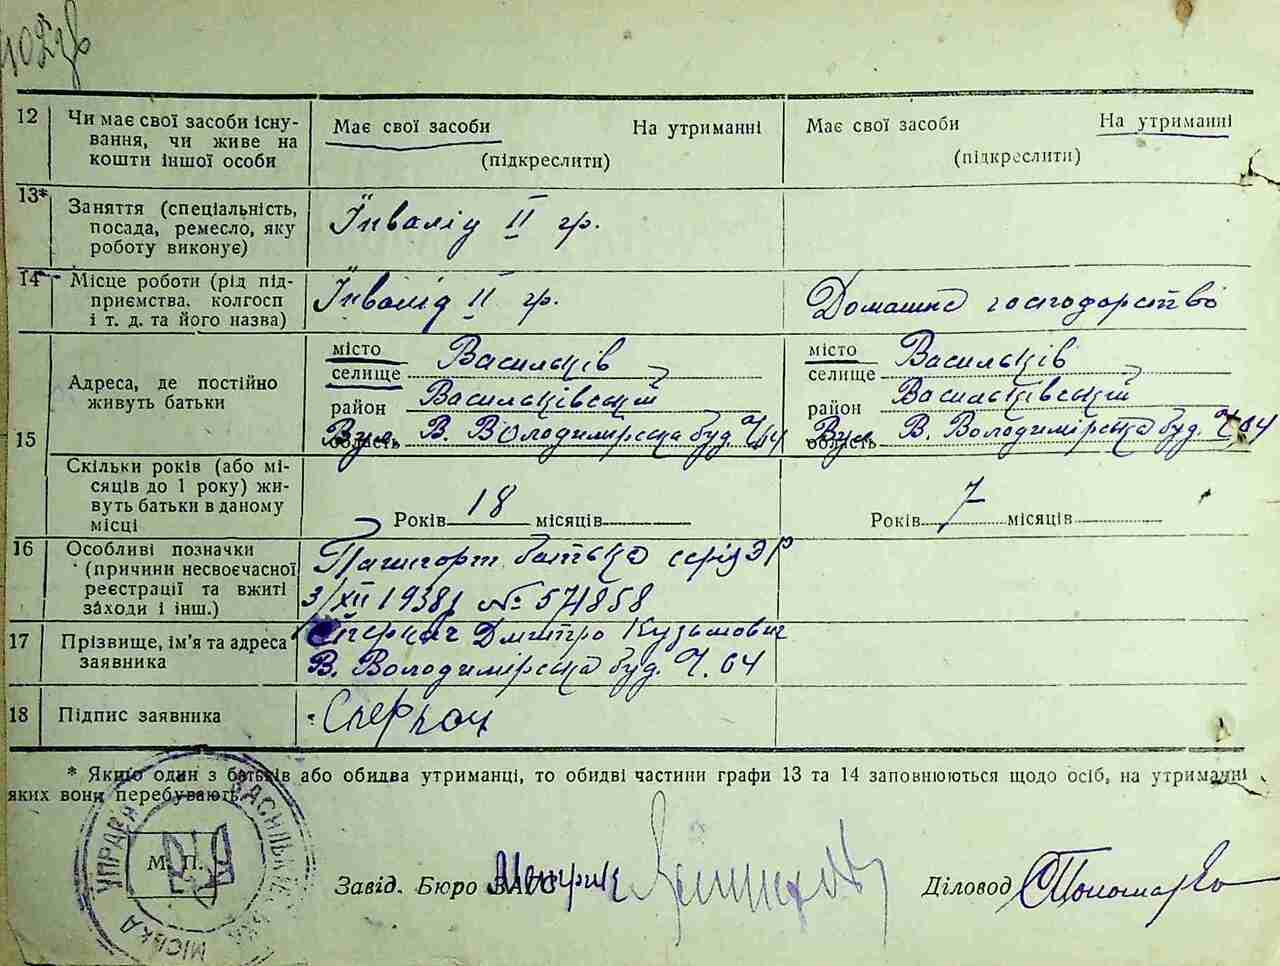 12 Чи має свої засоби існу-
вання, чи живе на
кошти іншої особи
Має свої засоби На утриманні
(підкреслити)
Має свої засоби На утриманні
(підкреслити)
13* Заняття (спеціальність,
посада, ремесло, яку
роботу виконує)
Інвалід II гр.
14 Місце роботи (рід під-
приємства, колгосп
і т. д. та його назва)
Інвалід II гр.
Домашнє господарство
15 Адреса, де постійно
живуть батьки
місто Васильків
селище
район Васильківський
область Вул. В. Володимирська буд. Ч. 64
місто Васильків
селище
район Васильківський
область Вул. В. Володимірська буд. Ч. 64
Скільки років (або мі-
сяців до 1 року) жи-
вуть батьки в даному
місці
Років 18 місяців
Років 7 місяців
16 Особливі позначки
(причини несвоєчасної
реєстрації та вжиті
заходи і інш.)
Пашпорт батька серія ЭР
3/XII 1938 № 574858
17 Прізвище, ім'я та адреса
заявника
Дмитро Кузьмович
В. Володимірська буд. Ч. 64
18 Підпис заявника
* Якщо один з батьків або обидва утриманці, то обидві частини графи 13 та 14 заповнюються щодо осіб, на утриманні
яких вони перебувають.
М. П.
ВАСИЛЬКІВСЬКА МІСЬКА УПРАВА
Завід. Бюро ЗАГС
Діловод Пономаренко